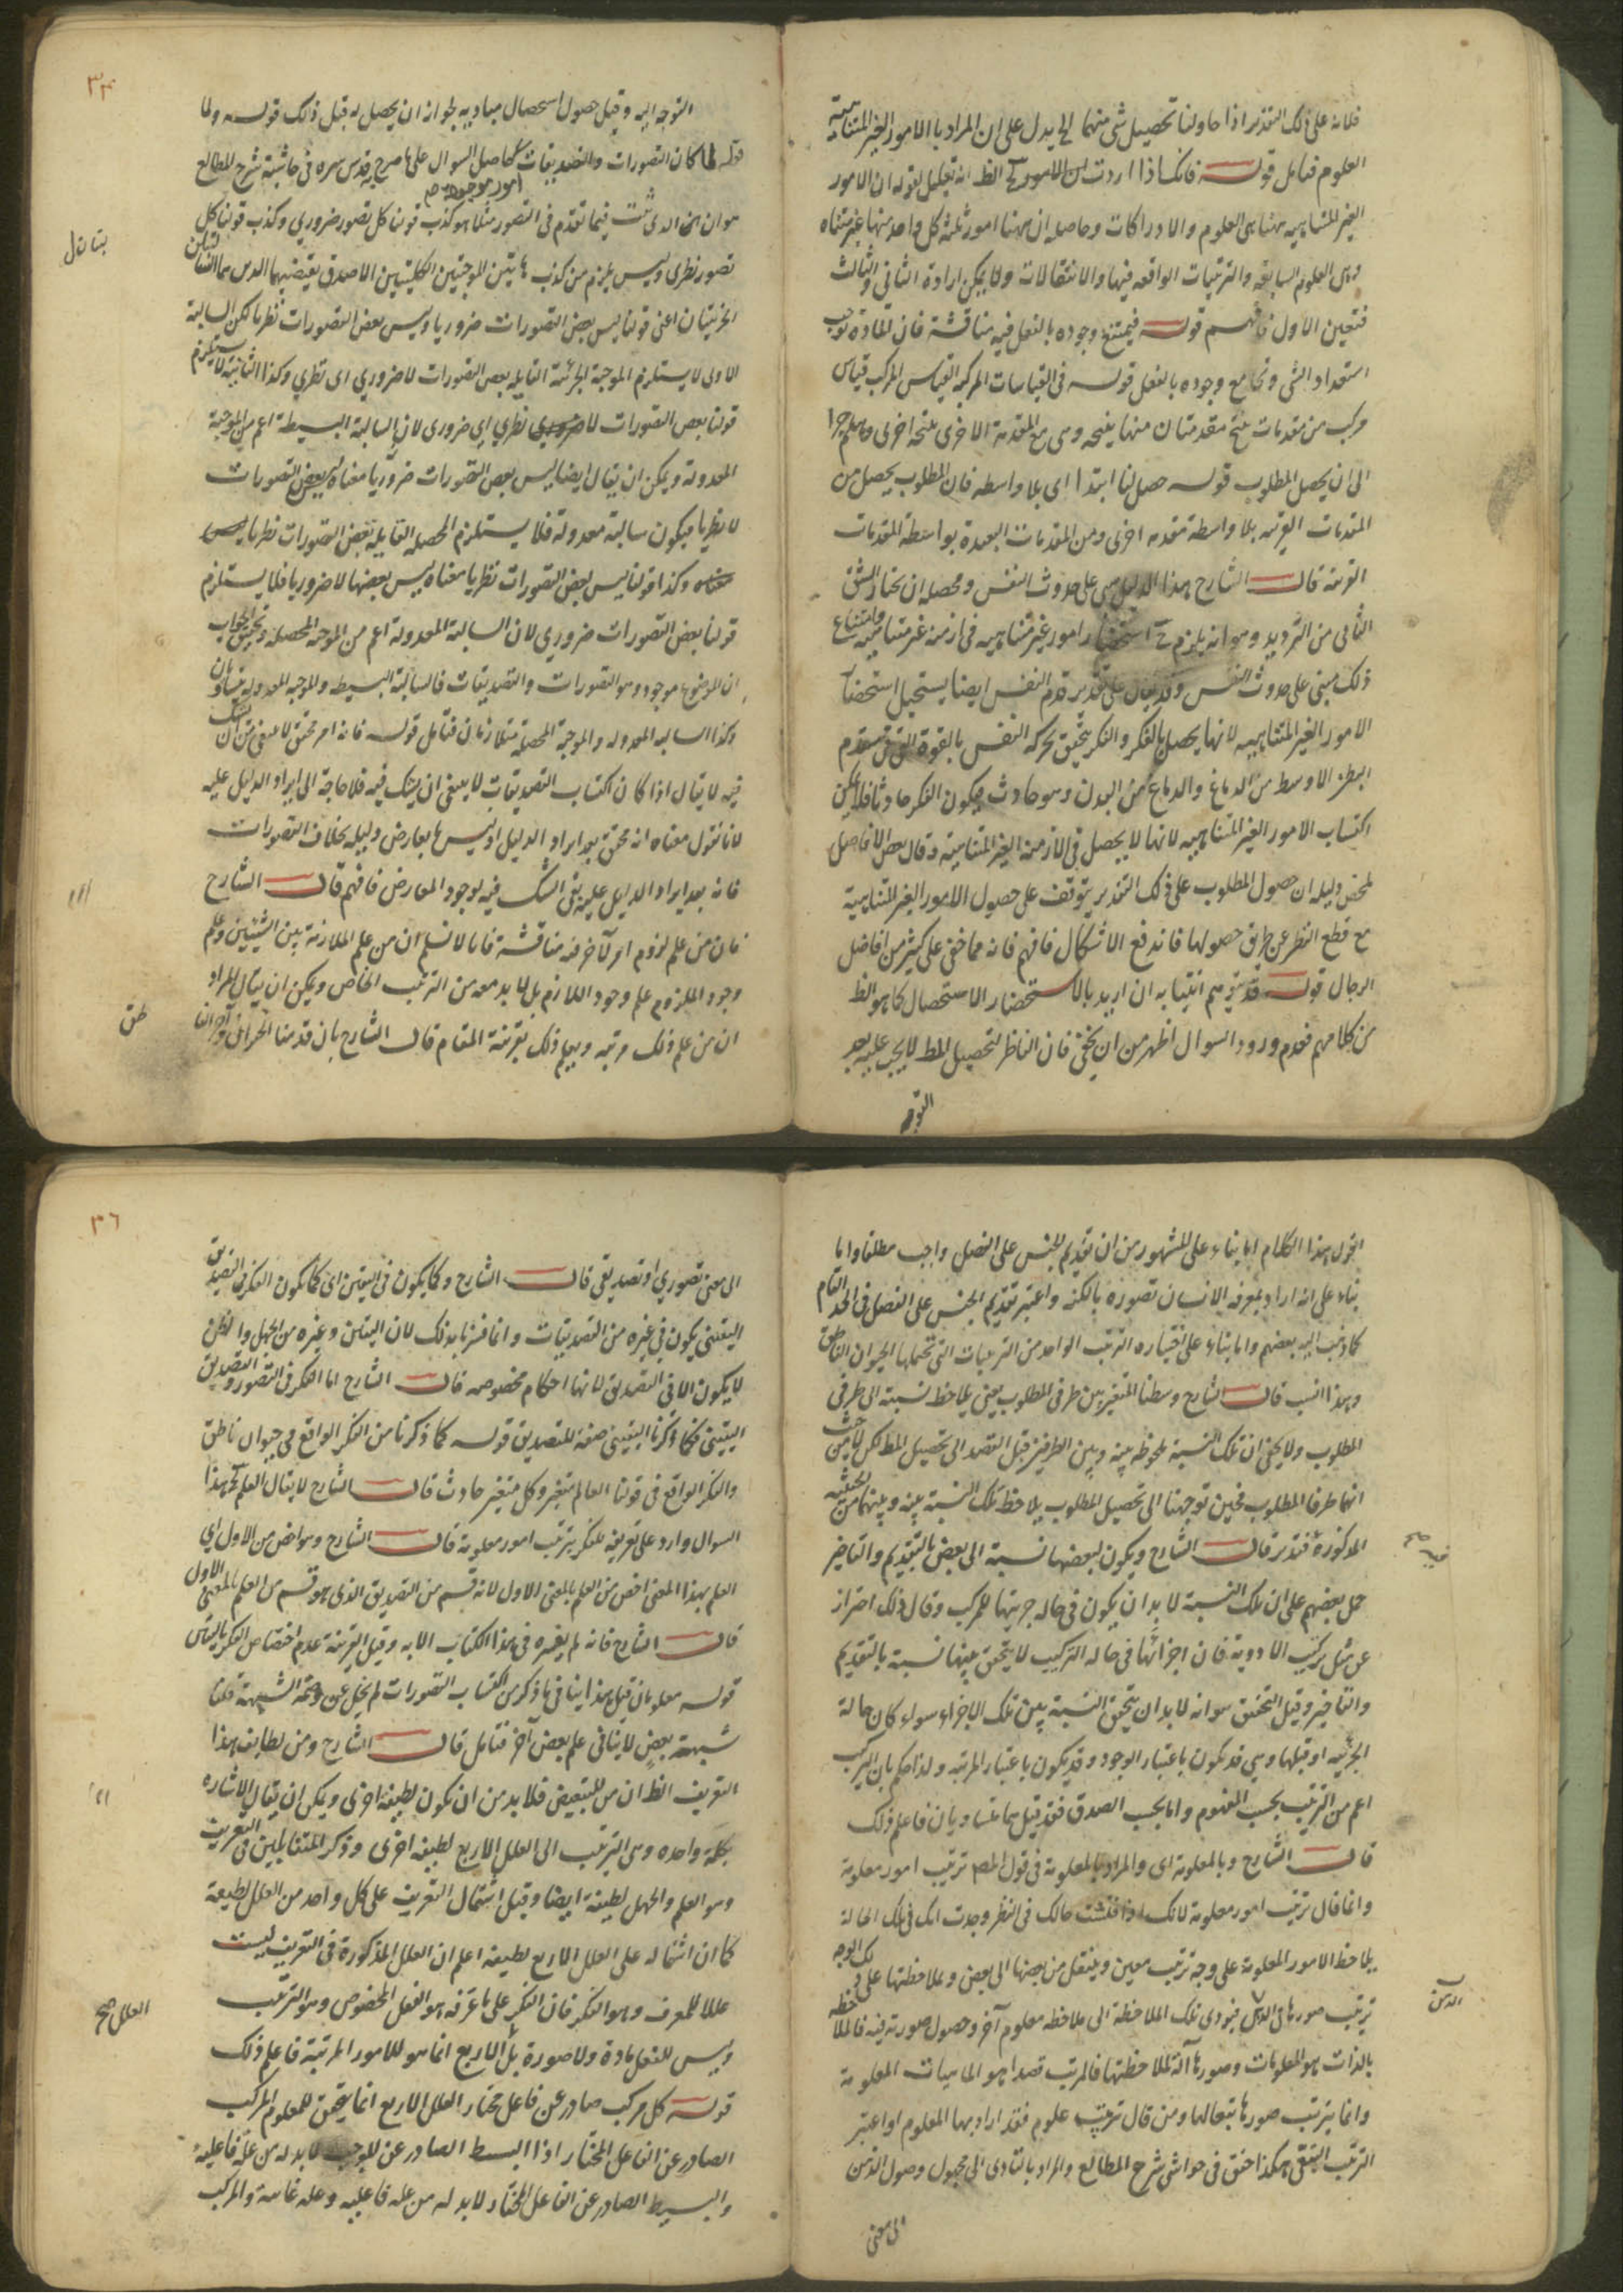 فلانه على ذلك التقدير اذا حاولنا تحصيل شئ منهما الخ يدل على ان المراد بالامور الغير المتناهية
العلوم فتامل قوله فانك اذا اردت ان الامور الخ الظ انه تعليل لقوله ان الامور
الغير المتناهيه ههنا هى العلوم والادراكات وحاصله ان ههنا امور ثلثة كل واحد منها غير متناه
وهى العلوم السابقه والترتيبات الواقعه فيها والانتقالات ولا يمكن ارادة الثانى والثالث
فتعين الاول فافهم قوله فيمتنع وجوده بالفعل فيه مناقشة فان المادة توجب
استعداد الشى وتجامع وجوده بالفعل قوله فى القياسات المركبه القياس المركب قياس
مركب من مقدمات ينتج مقدمتان منها نتيجه وهى مع المقدمة الاخرى نتيجة اخرى وهلم جرا
الى ان يحصل المطلوب قوله حصل لنا ابتدا اى بلا واسطه فان المطلوب يحصل من
المقدمات القريبه بلا واسطة مقدمه اخرى ومن المقدمات البعيدة بواسطة المقدمات
القريبه قال الشارح هذا الدليل مبنى على حدوث النفس ومحصله ان نختار الشق
الثانى من الترديد وهو انه يلزم ح استحضار امور غير متناهيه فى ازمنة غير متناهيه وامتناع
ذلك مبنى على حدوث النفس وقد يقال على تقدير قدم النفس ايضا يستحيل استحضار
الامور الغير المتناهيه لانها يحصل بالفكر والفكر يتحقق بحركة النفس بالقوة التى فى مقدم
البطن الاوسط من الدماغ والدماغ من البدن وهو حادث فيكون الفكر حادثا فلا يمكن
اكتساب الامور الغير المتناهيه لانها لا يحصل فى الازمنة الغير المتناهية وقال بعض الافاضل
ملخص دليله ان حصول المطلوب على ذلك التقدير يتوقف على حصول الامور الغير المتناهية
مع قطع النظر عن طريق حصولها فاندفع الاشكال فافهم فانه مما خفى على كثير من افاضل
الرجال قوله قد يتوهم انتيابه ان اريد بالاستحضار الاستحصال كما هو الظ
من كلامهم فعدم ورود السوال اظهر من ان يخفى فان الناظر لتحصيل المط لا يجب عليه بعد
التوجه
٣٤
التوجه اليه وقبل حصول استحصال مباديه لجواز ان يحصل له قبل ذلك قوله ولما
قوله لما كان التصورات والتصديقات حاصل السوال على ما صرح به قدس سره فى حاشية شرح المطالع
امور موجودة صح
هو ان الذى ثبت فيما تقدم فى التصور مثلا هو كذب قولنا كل تصور ضرورى وكذب قولنا كل
تصور نظرى وليس يلزم من كذب هاتين الموجبتين الكليتين الا صدق نقيضيهما اللذين هما السالبتان
الجزئيتان اعنى قولنا ليس بعض التصورات ضروريا وليس بعض التصورات نظريا لكن السالبة
الاولى لا يستلزم الموجبة الجزئية القايله بعض التصورات لا ضرورى اى نظرى وكذا الثانية لا يستلزم
قولنا بعض التصورات لا نظرى اى ضرورى لان السالبة البسيطة اعم من الموجبة
المعدولة ويمكن ان يقال ايضا ليس بعض التصورات ضروريا معناه ليس بعض التصورات
لا نظريا فيكون سالبة معدولة فلا يستلزم المحصله القايله بعض التصورات نظريا
معناه وكذا قولنا ليس بعض التصورات نظريا معناه ليس بعضها لا ضروريا فلا يستلزم
قولنا بعض التصورات ضرورى لان السالبة المعدولة اعم من الموجبة المحصله وتحقيق الجواب
ان الموضوع موجود وهو التصورات والتصديقات فالسالبة البسيطه والموجبه المعدوله متساويان
وكذا السالبه المعدوله والموجبة المحصلة متلازمان فتامل قوله فانه امر محقق لا ينبغى ان يشك
فيه لا يقال اذا كان اكتساب التصديقات لا ينبغى ان يشك فيه فلا حاجة الى ايراد الدليل عليه
لانا نقول معناه انه محقق بعد ايراد الدليل اوليس ما يعارض دليله بخلاف التصورات
فانه بعد ايراد الدليل عليه بقى الشك فيه لوجود المعارض فافهم قال الشارح
فان من علم لزوم امر لآخر فيه مناقشة فانا لا نسلم ان من علم الملازمة بين الشيئين وعلم
وجود الملزوم علم وجود اللازم بل لا بد معه من الترتيب الخاص ويمكن ان يقال المراد
ان من علم ذلك مرتبه ويعلم ذلك بقرينة المقام قال الشارح بان قدمنا
اقول هذا الكلام اما بناء على المشهور من ان تقديم الجنس على الفصل واجب مطلقا واما
بناء على انه اراد بمعرفة الانسان تصوره بالكنه واعتبر تقديم الجنس على الفصل فى الحد التام
كما ذهب اليه بعضهم واما بناء على اختياره الترتيب الواحد من الترتيبات التى تحتملها الحيوان الناطق
وهذا انسب قال الشارح وسطنا المتغير بين طرفى المطلوب يعنى يلاحظ نسبة الى طرفى
المطلوب ولا يخفى ان تلك النسبة ملحوظه بينه وبين الطرفين قبل القصد الى تحصيل المط لكن لا من حيث
انهما طرفا المطلوب فحين توجهنا الى تحصيل المطلوب يلاحظ تلك النسبة بينه وبينهما من الحيثية
المذكورة فتدبر قال الشارح ويكون لبعضها نسبة الى بعض بالتقديم والتاخير
حمل بعضهم على ان تلك النسبة لا بد ان يكون فى حاله جزئيتها للمركب وقال ذلك احتراز
عن مثل تركيب الادوية فان اجزائها فى حاله التركيب لا يتحقق بينها نسبة بالتقديم
والتاخير وقيل التحقيق هو انه لا بد ان يتحقق النسبة بين تلك الاجزاء سواء كان حالة
الجزئيه او قبلها وهى قد يكون باعتبار الوجود وقد يكون باعتبار المرتبه ولذا حكم بان التركيب
اعم من الترتيب بحسب المفهوم واما بحسب الصدق فقد قيل هما متساويان فاعلم ذلك
قال الشارح وبالمعلومة اى والمراد بالمعلومة فى قول المصـ ترتيب امور معلومة
وانما قال ترتيب امور معلومة لانك اذا فتشت حالك فى النظر وجدت انك فى تلك الحالة
يلاحظ الامور المعلومة على وجه ترتيب معين وينتقل من بعضها الى بعض وملاحظتها على ذلك الوجه
ترتيب صورها فى الذهن فيؤدى تلك الملاحظة الى ملاحظه معلوم آخر وحصول صورته فيه فالملاحظه
بالذات هو المعلومات وصورها آلة لملاحظتها فالمرتب قصدا هو الماهيات المعلومة
وانما يترتب صورها تبعا لها ومن قال ترتيب علوم فقد اراد بها المعلوم او اعتبر
الترتيب التبعى هكذا حقق فى حواشى شرح المطالع والمراد بالتادى الى مجهول وصول الذهن
الى معنى
٣٦
الى معنى تصورى او تصديقى قال الشارح وكما يكون فى اليقين اى كما يكون الفكر فى التصديق
اليقينى يكون فى غيره من التصديقات وانما فسرنا بذلك لان اليقين وغيره من الجهل والظن
لا يكون الا فى التصديق لانها احكام مخصوصه قال الشارح اما الفكر فى التصور والتصديق
اليقينى فكما ذكرنا اليقينى صفة للتصديق قوله كما ذكرنا من الفكر الواقع فى حيوان ناطق
والفكر الواقع فى قولنا العالم متغير وكل متغير حادث قال الشارح لا يقال العلم الخ هذا
السوال وارد على تعريفه للفكر بترتيب امور معلومة قال الشارح وهو اخص من الاول اى
العلم بهذا المعنى اخص من العلم بالمعنى الاول لانه قسم من التصديق الذى هو قسم من العلم بالمعنى الاول
قال الشارح فانه لم يفسره فى هذا الكتاب الا به وقيل القرينة عدم اختصاص الفكر باليقين
قوله معلومان قيل هذا ينافى ما ذكر من اكتساب التصورات لم يخل عن وصمة الشبهة قلنا
شبهة بعض لا ينافى علم بعض آخر فتامل قال الشارح ومن لطايف هذا
التعريف الظ ان من للتبعيض فلا بد من ان يكون لطيفة اخرى ويمكن ان يقال الاشاره
بكلمة واحده وهى الترتيب الى العلل الاربع لطيفه اخرى وذكر المتقابلين فى التعريف
وهو العلم والجهل لطيفة ايضا وقيل اشتمال التعريف على كل واحد من العلل لطيفة
كما ان اشتماله على العلل الاربع لطيفه اعلم ان العلل المذكورة فى التعريف ليست
عللا للمعرف وهو الفكر فان الفكر على ما عرفه هو الفعل المخصوص وهو الترتيب
العلل صح
وليس للفعل مادة ولا صورة بل الاربع انما هو للامور المرتبة فاعلم ذلك
قوله كل مركب صادر عن فاعل مختار العلل الاربع انما يتحقق للمعلوم المركب
الصادر عن الفاعل المختار اذ البسيط الصادر عن الموجب لا بد له من علة فاعلية
والبسيط الصادر عن الفاعل المختار لا بد له من علة فاعليه وعله غاييه والمركب